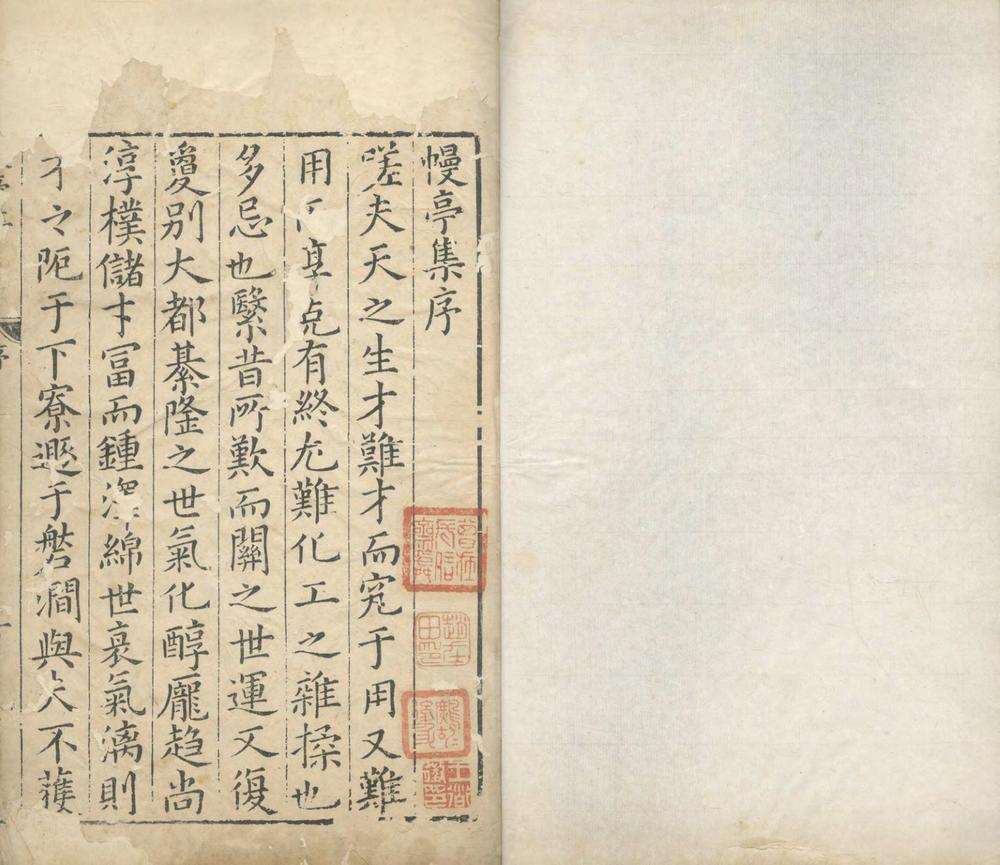 幔亭集序
嗟夫天之生才難才而究于用又難
用而享克有終尤難化工之雜揉也
多忌也繄昔所歎而關之世運又復
敻別大都綦隆之世氣化醇龐趋尚
淳樸儲才冨而鍾深綿世衰氣漓則
才之阨于下寮遯于磐澗與夫不獲
序